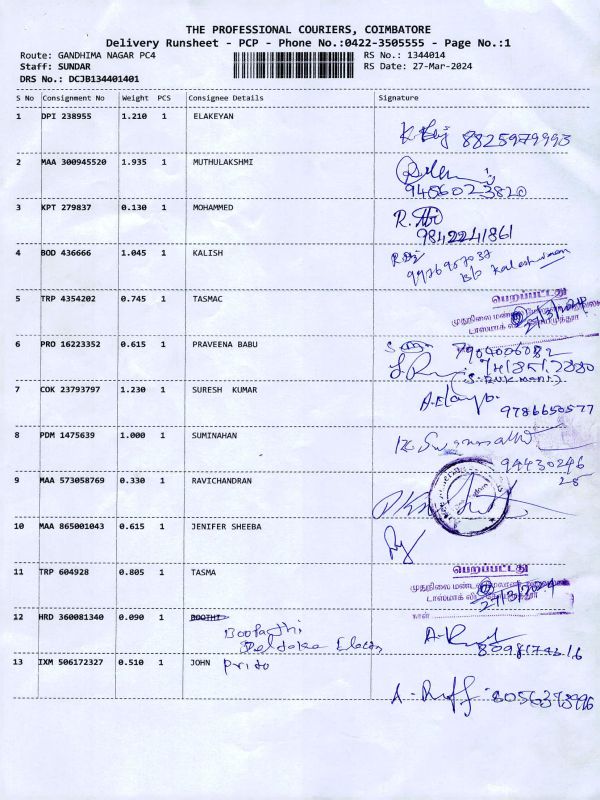 THE PROFESSIONAL COURIERS, COIMBATORE
Delivery Runsheet - PCP - Phone No.:0422-3505555 - Page No.:1
Route: GANDHIMA NAGAR PC4 RS No.: 1344014
Staff: SUNDAR RS Date: 27-Mar-2024
DRS No.: DCJB134401401
S No Consignment No Weight PCS Consignee Details Signature
1 DPI 238955 1.210 1 ELAKEYAN
8825979993
2 MAA 300945520 1.935 1 MUTHULAKSHMI
9456023820
3 KPT 279837 0.130 1 MOHAMMED
9842241861
4 BOD 436666 1.045 1 KALISH
5 TRP 4354202 0.745 1 TASMAC
பெறப்பட்டது
6 PRO 16223352 0.615 1 PRAVEENA BABU
7904006082
7 COK 23793797 1.230 1 SURESH KUMAR
9786650577
8 PDM 1475639 1.000 1 SUMINAHAN
94430246
25
9 MAA 573058769 0.330 1 RAVICHANDRAN
10 MAA 865001043 0.615 1 JENIFER SHEEBA
11 TRP 604928 0.805 1 TASMA
பெறப்பட்டது
27/3/2024
12 HRD 360081340 0.090 1 BOOTHI
Boopathi
13 IXM 506172327 0.510 1 JOHN prito
8056393996